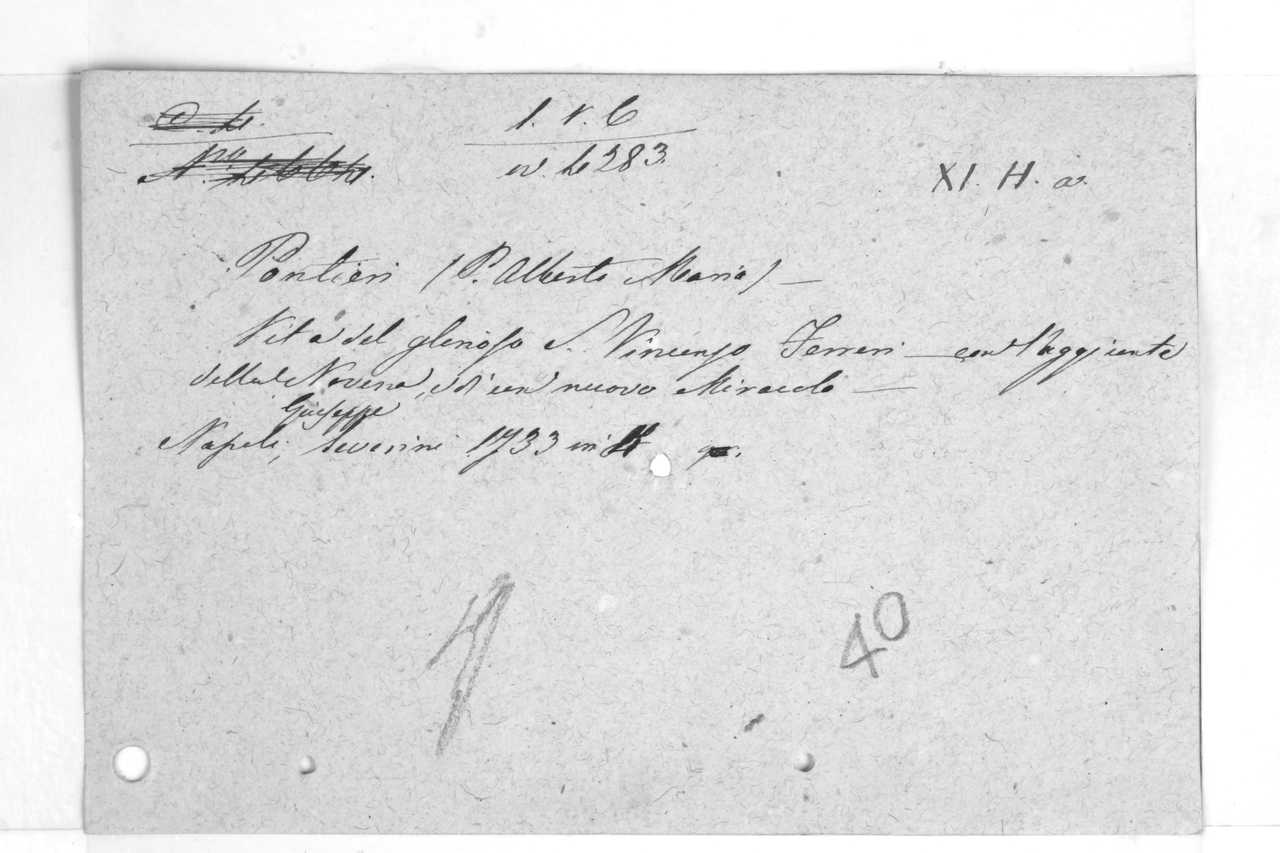 1. v. C
XI. H. a.
Pontieri (P. Alberto Maria) —
Vita del glorioso S. Vincenzo Ferreri — con l'aggiunta
della Novena, e d'un nuovo Miracolo —
Giuseppe
Napoli, Severini 1733 in
40